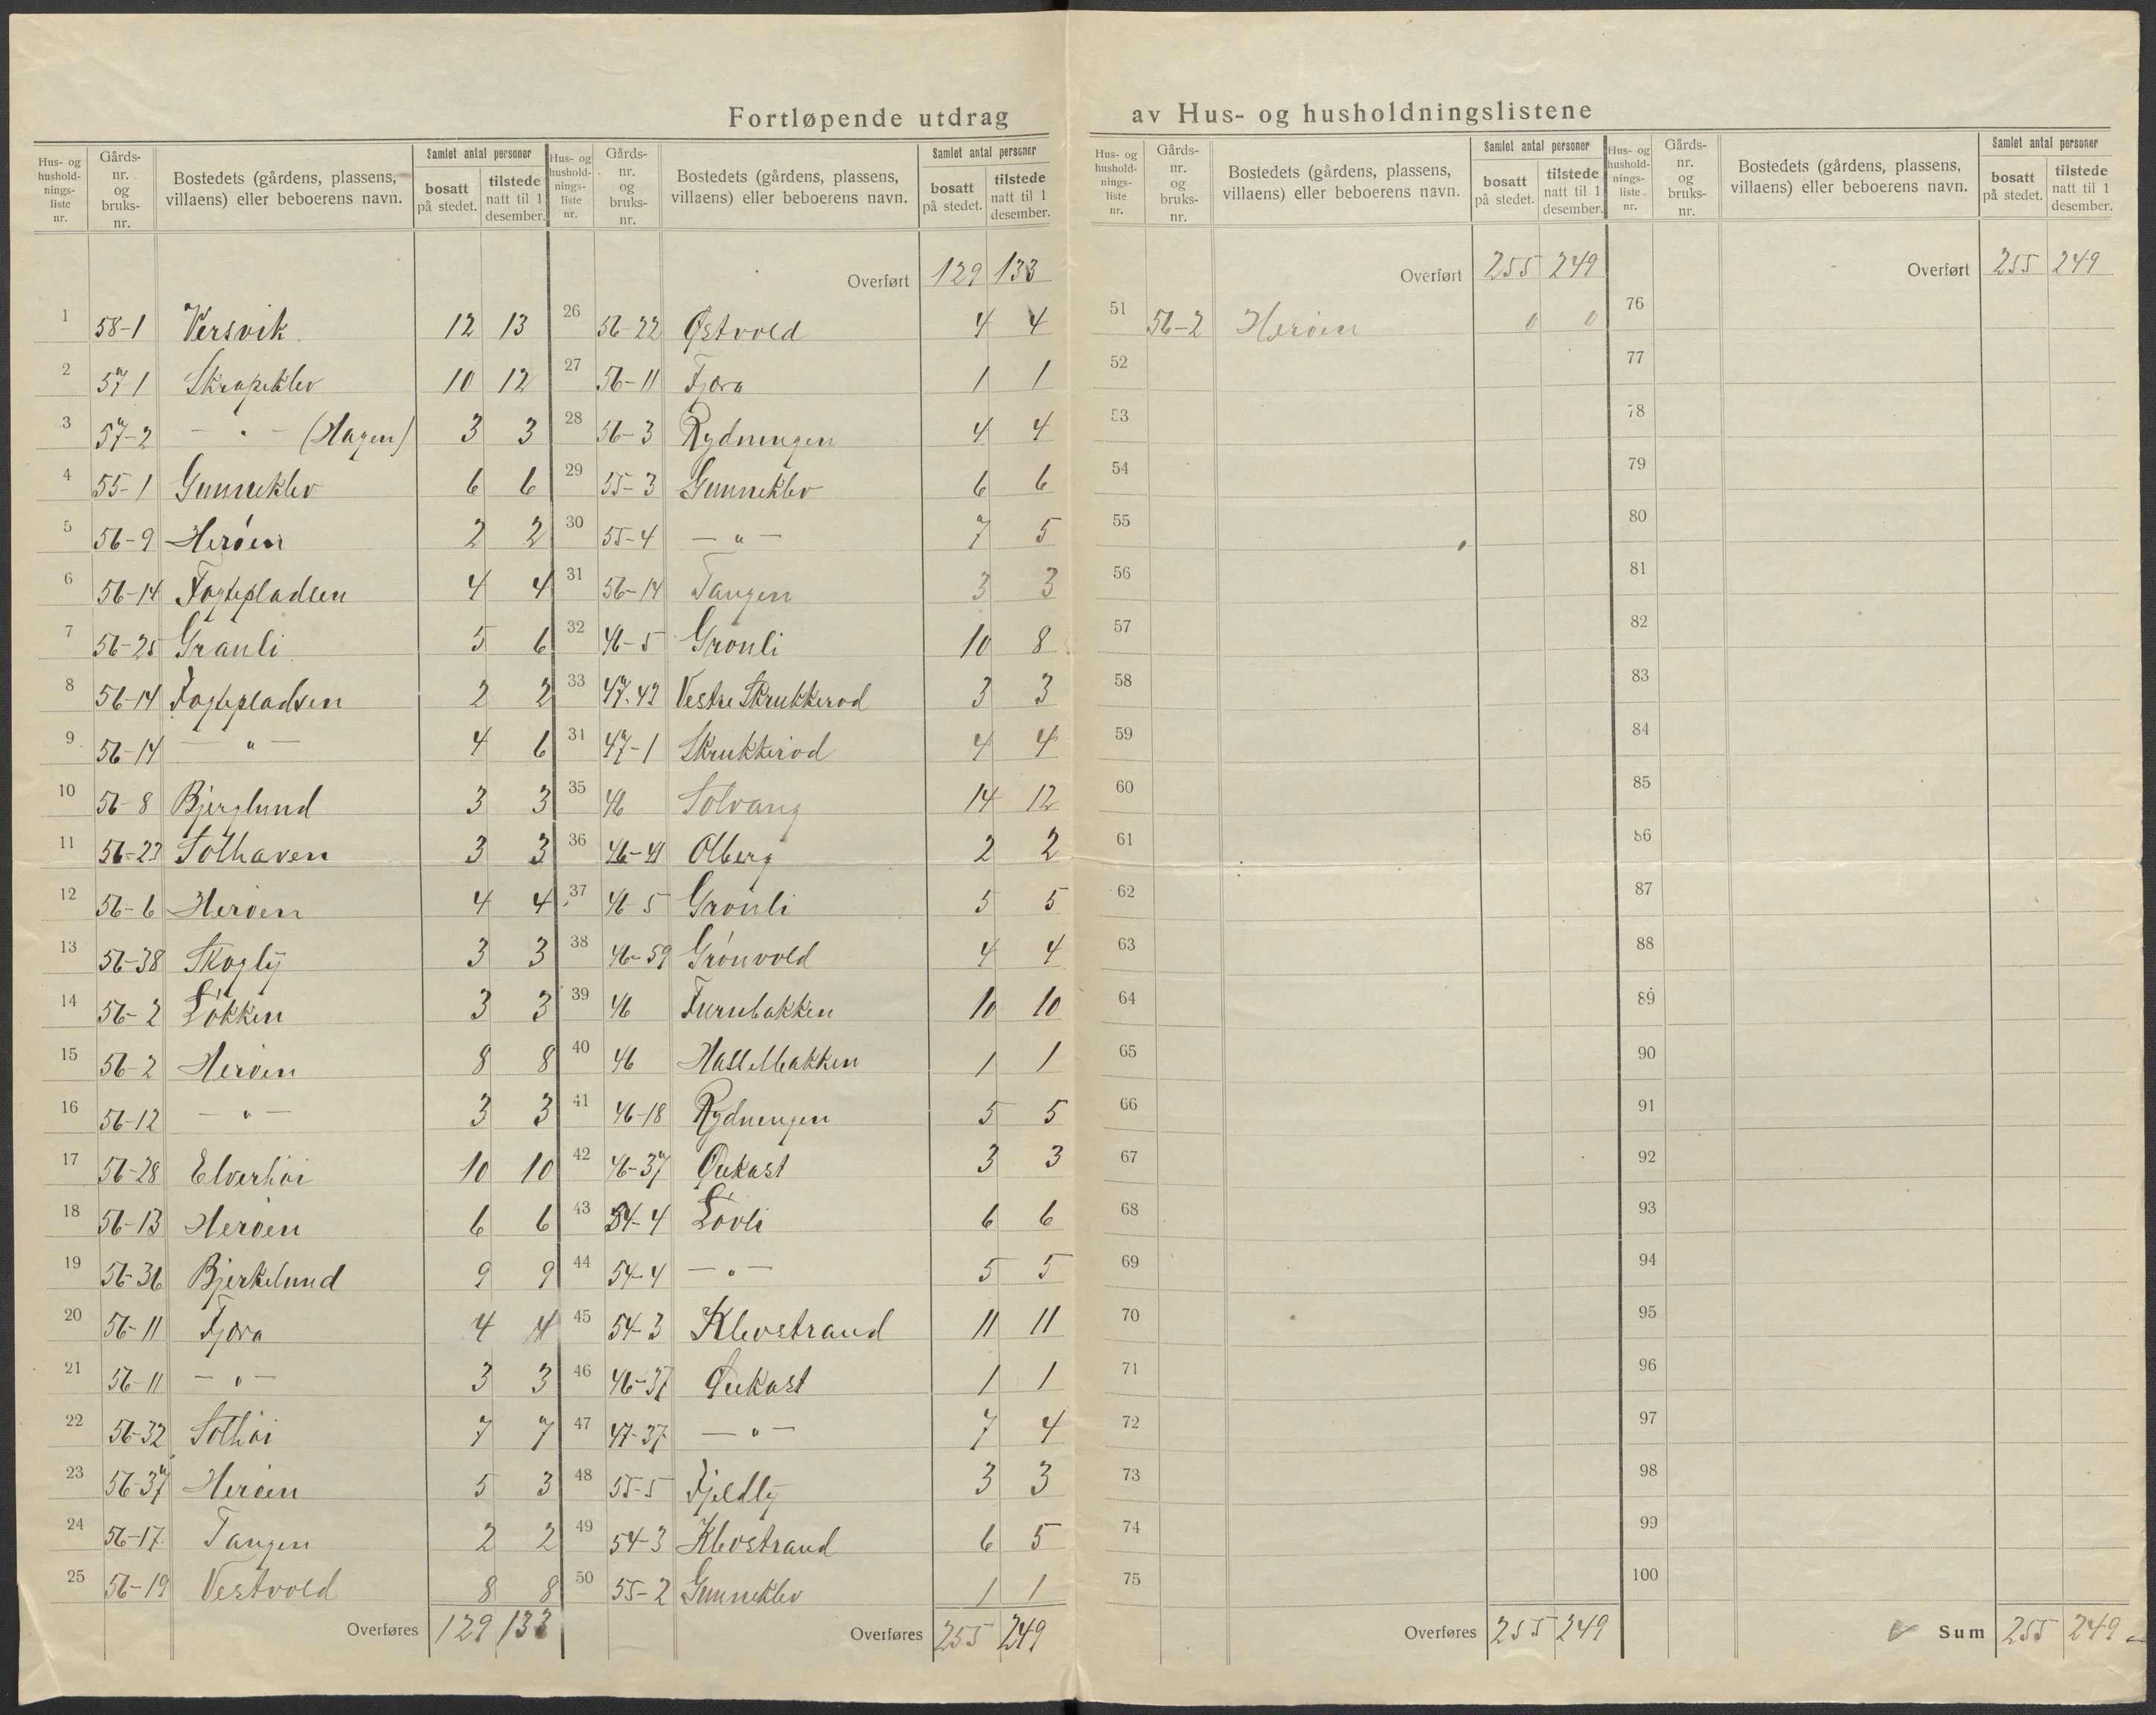 Fortløpende utdrag av Hus- og husholdningslistene
Hus- og hushold- nings- liste nr. | Gårds- nr. og bruks- nr. | Bostedets (gårdens, plassens, villaens) eller beboerens navn. | Samlet antal personer | bosatt på stedet. | tilstede natt til 1 desember.
1 58-1 Versvik 12 13
2 57-1 Skrapeklev 10 12
3 57-2 — " — (Hagen) 3 3
4 55-1 Gunneklev 6 6
5 56-9 Herøen 2 2
6 56-14 Fogtepladsen 4 4
7 56-25 Granli 5 6
8 56-14 Fogtepladsen 2 2
9 56-14 — " — 4 6
10 56-8 Bjerglund 3 3
11 56-23 Solhaven 3 3
12 56-6 Herøen 4 4
13 56-38 Skogly 3 3
14 56-2 Løkken 3 3
15 56-2 Herøen 8 8
16 56-12 — " — 3 3
17 56-28 Elverhøi 10 10
18 56-13 Herøen 6 6
19 56-36 Bjerkelund 9 9
20 56-11 Fjæra 4 4
21 56-11 — " — 3 3
22 56-32 Solhøi 7 7
23 56-37 Herøen 5 3
24 56-17 Tangen 2 2
25 56-19 Vestvold 8 8
Overføres 129 133
Hus- og hushold- nings- liste nr. | Gårds- nr. og bruks- nr. | Bostedets (gårdens, plassens, villaens) eller beboerens navn. | Samlet antal personer | bosatt på stedet. | tilstede natt til 1 desember.
Overført 129 133
26 56-22 Østvold 4 4
27 56-11 Fjæra 1 1
28 56-3 Rydningen 4 4
29 55-3 Gunneklev 6 6
30 55-4 — " — 7 5
31 56-14 Tangen 3 3
32 46-5 Grønli 10 8
33 47-42 Vestre Skrukkerød 3 3
34 47-1 Skrukkerød 4 4
35 46 Solvang 14 12
36 46-41 Olberg 2 2
37 46-5 Grønli 5 5
38 46-59 Grønvold 4 4
39 46 Furubakken 10 10
40 46 Hasselbakken 1 1
41 46-18 Rydningen 5 5
42 46-37 Ørekast 3 3
43 54-4 Løvli 6 6
44 54-4 — " — 5 5
45 54-3 Klevstrand 11 11
46 46-37 Ørekast 1 1
47 47-37 — " — 7 4
48 55-5 Fjeldly 3 3
49 54-3 Klevstrand 6 5
50 55-2 Gunneklev 1 1
Overføres 255 249
Hus- og hushold- nings- liste nr. | Gårds- nr. og bruks- nr. | Bostedets (gårdens, plassens, villaens) eller beboerens navn. | Samlet antal personer | bosatt på stedet. | tilstede natt til 1 desember.
Overført 255 249
51 56-2 Herøen 0 0
52
53
54
55
56
57
58
59
60
61
62
63
64
65
66
67
68
69
70
71
72
73
74
75
Overføres 255 249
Hus- og hushold- nings- liste nr. | Gårds- nr. og bruks- nr. | Bostedets (gårdens, plassens, villaens) eller beboerens navn. | Samlet antal personer | bosatt på stedet. | tilstede natt til 1 desember.
Overført 255 249
76
77
78
79
80
81
82
83
84
85
86
87
88
89
90
91
92
93
94
95
96
97
98
99
100
Sum 255 249